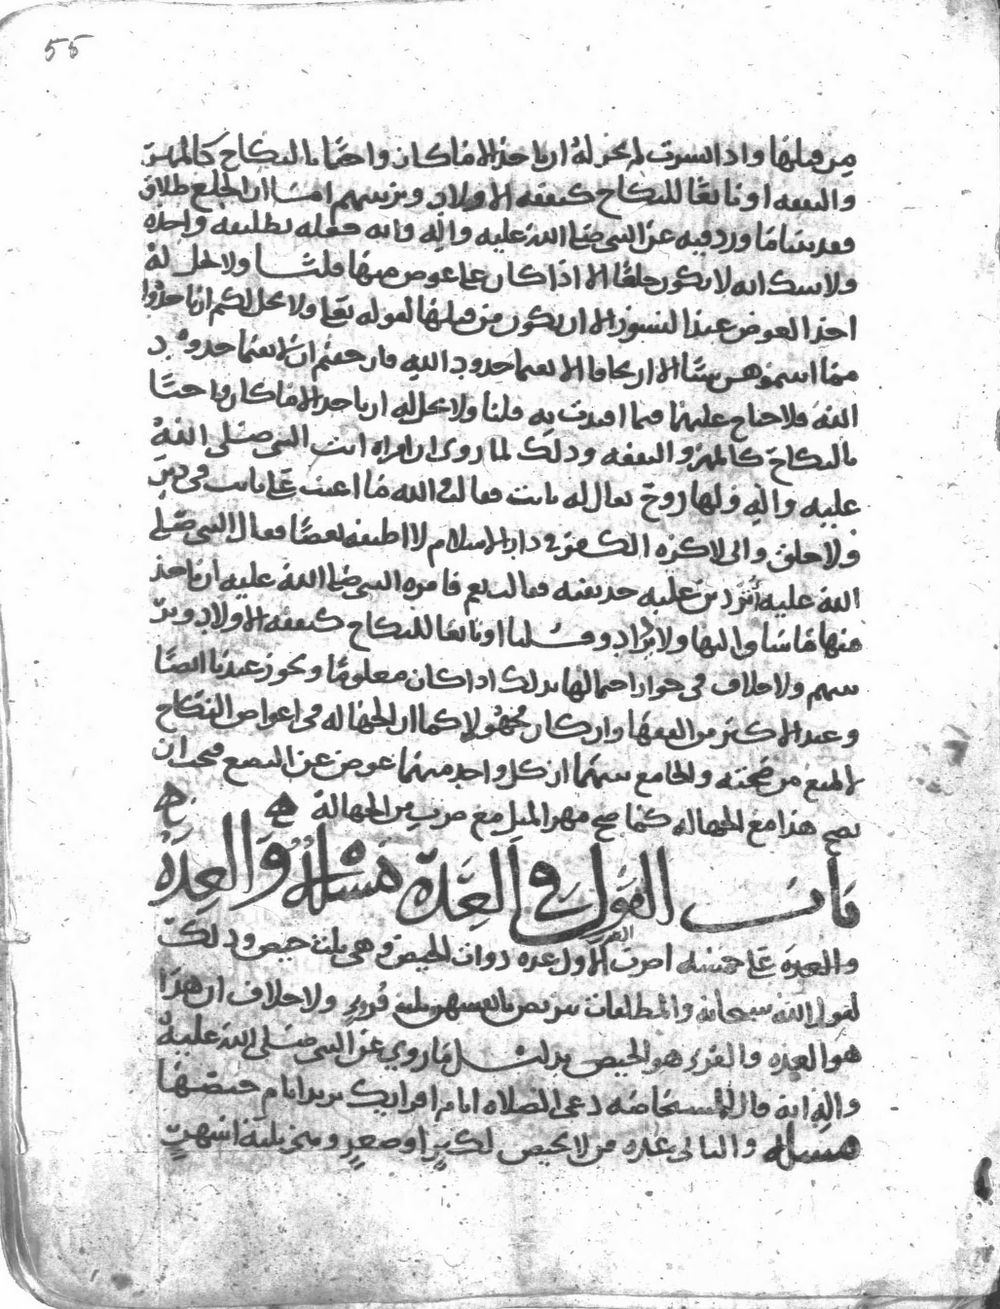 55
من قبلها واذا نشزت لم يجز له ان ياخذ الا ما كان واجبا بالنكاح كالمهر
والنفقه او تابعا للنكاح كنفقه الاولاد وتربيتهم امسا ان الخلع طلاق
فقد بينا ما ورد فيه عن النبي صلى الله عليه واله وانه جعله تطليقه واحده
ولا شك انه لا يكون خلعا الا اذا كان على عوض منها قلنا ولا يحل له
اخذ العوض عند النشوز الا ان يكون من قبلها لقوله تعلى ولا يحل لكم ان تاخذوا
مما اتيتموهن شيئا الا ان يخافا الا يقيما حدود الله فان خفتم ان لا يقيما حدود
الله فلا جناح عليهما فيما افتدت به قلنا ولا يحل له ان ياخذ الا ما كان واجبا
بالنكاح كالمهر والنفقه وذلك لما روي ان امراه اتت النبي صلى الله
عليه واله ولها زوج يقال له ثابت فقالت والله ما اعتب على ثابت في دين
ولا خلق واني لاكره الكفر في دار الاسلام لا اطيقه بغضا فقال النبي صلى
الله عليه أتردين عليه حديقته فقالت نعم فامره النبي صلى الله عليه ان ياخذ
منها ما ساق اليها ولا يزداد وقلنا او تابعا للنكاح كنفقه الاولاد وتر
بيتهم ولا خلاف في جواز احتمالها بذلك اذا كان معلوما ويجوز عندنا ايضا
وعند الاكثر من الفقها وان كان مجهولا كما ان الجهاله في اعواض النكاح
لا تمنع من صحته والجامع بينهما ان كل واحد منهما عوض عن البضع فيجب ان
يصح هذا مع الجهاله كما صح مهر المثل مع ضرب من الجهالة
باب القول في العدة مسألة والعدة
والعدة على خمسه اضرب الاول عده ذوات الحيض وهي ثلث حيض وذلك
لقول الله سبحانه والمطلقات يتربصن بانفسهن ثلثة قروء ولا خلاف ان هذا
هو العده والقرء هو الحيض بدليل ما روي عن النبي صلى الله عليه
واله انه قال للمستحاضه دعي الصلاه ايام اقرائك يريد ايام حيضها
مسأله والثاني عده من لا يحيض لكبر او صغر وهي ثلثة اشهر